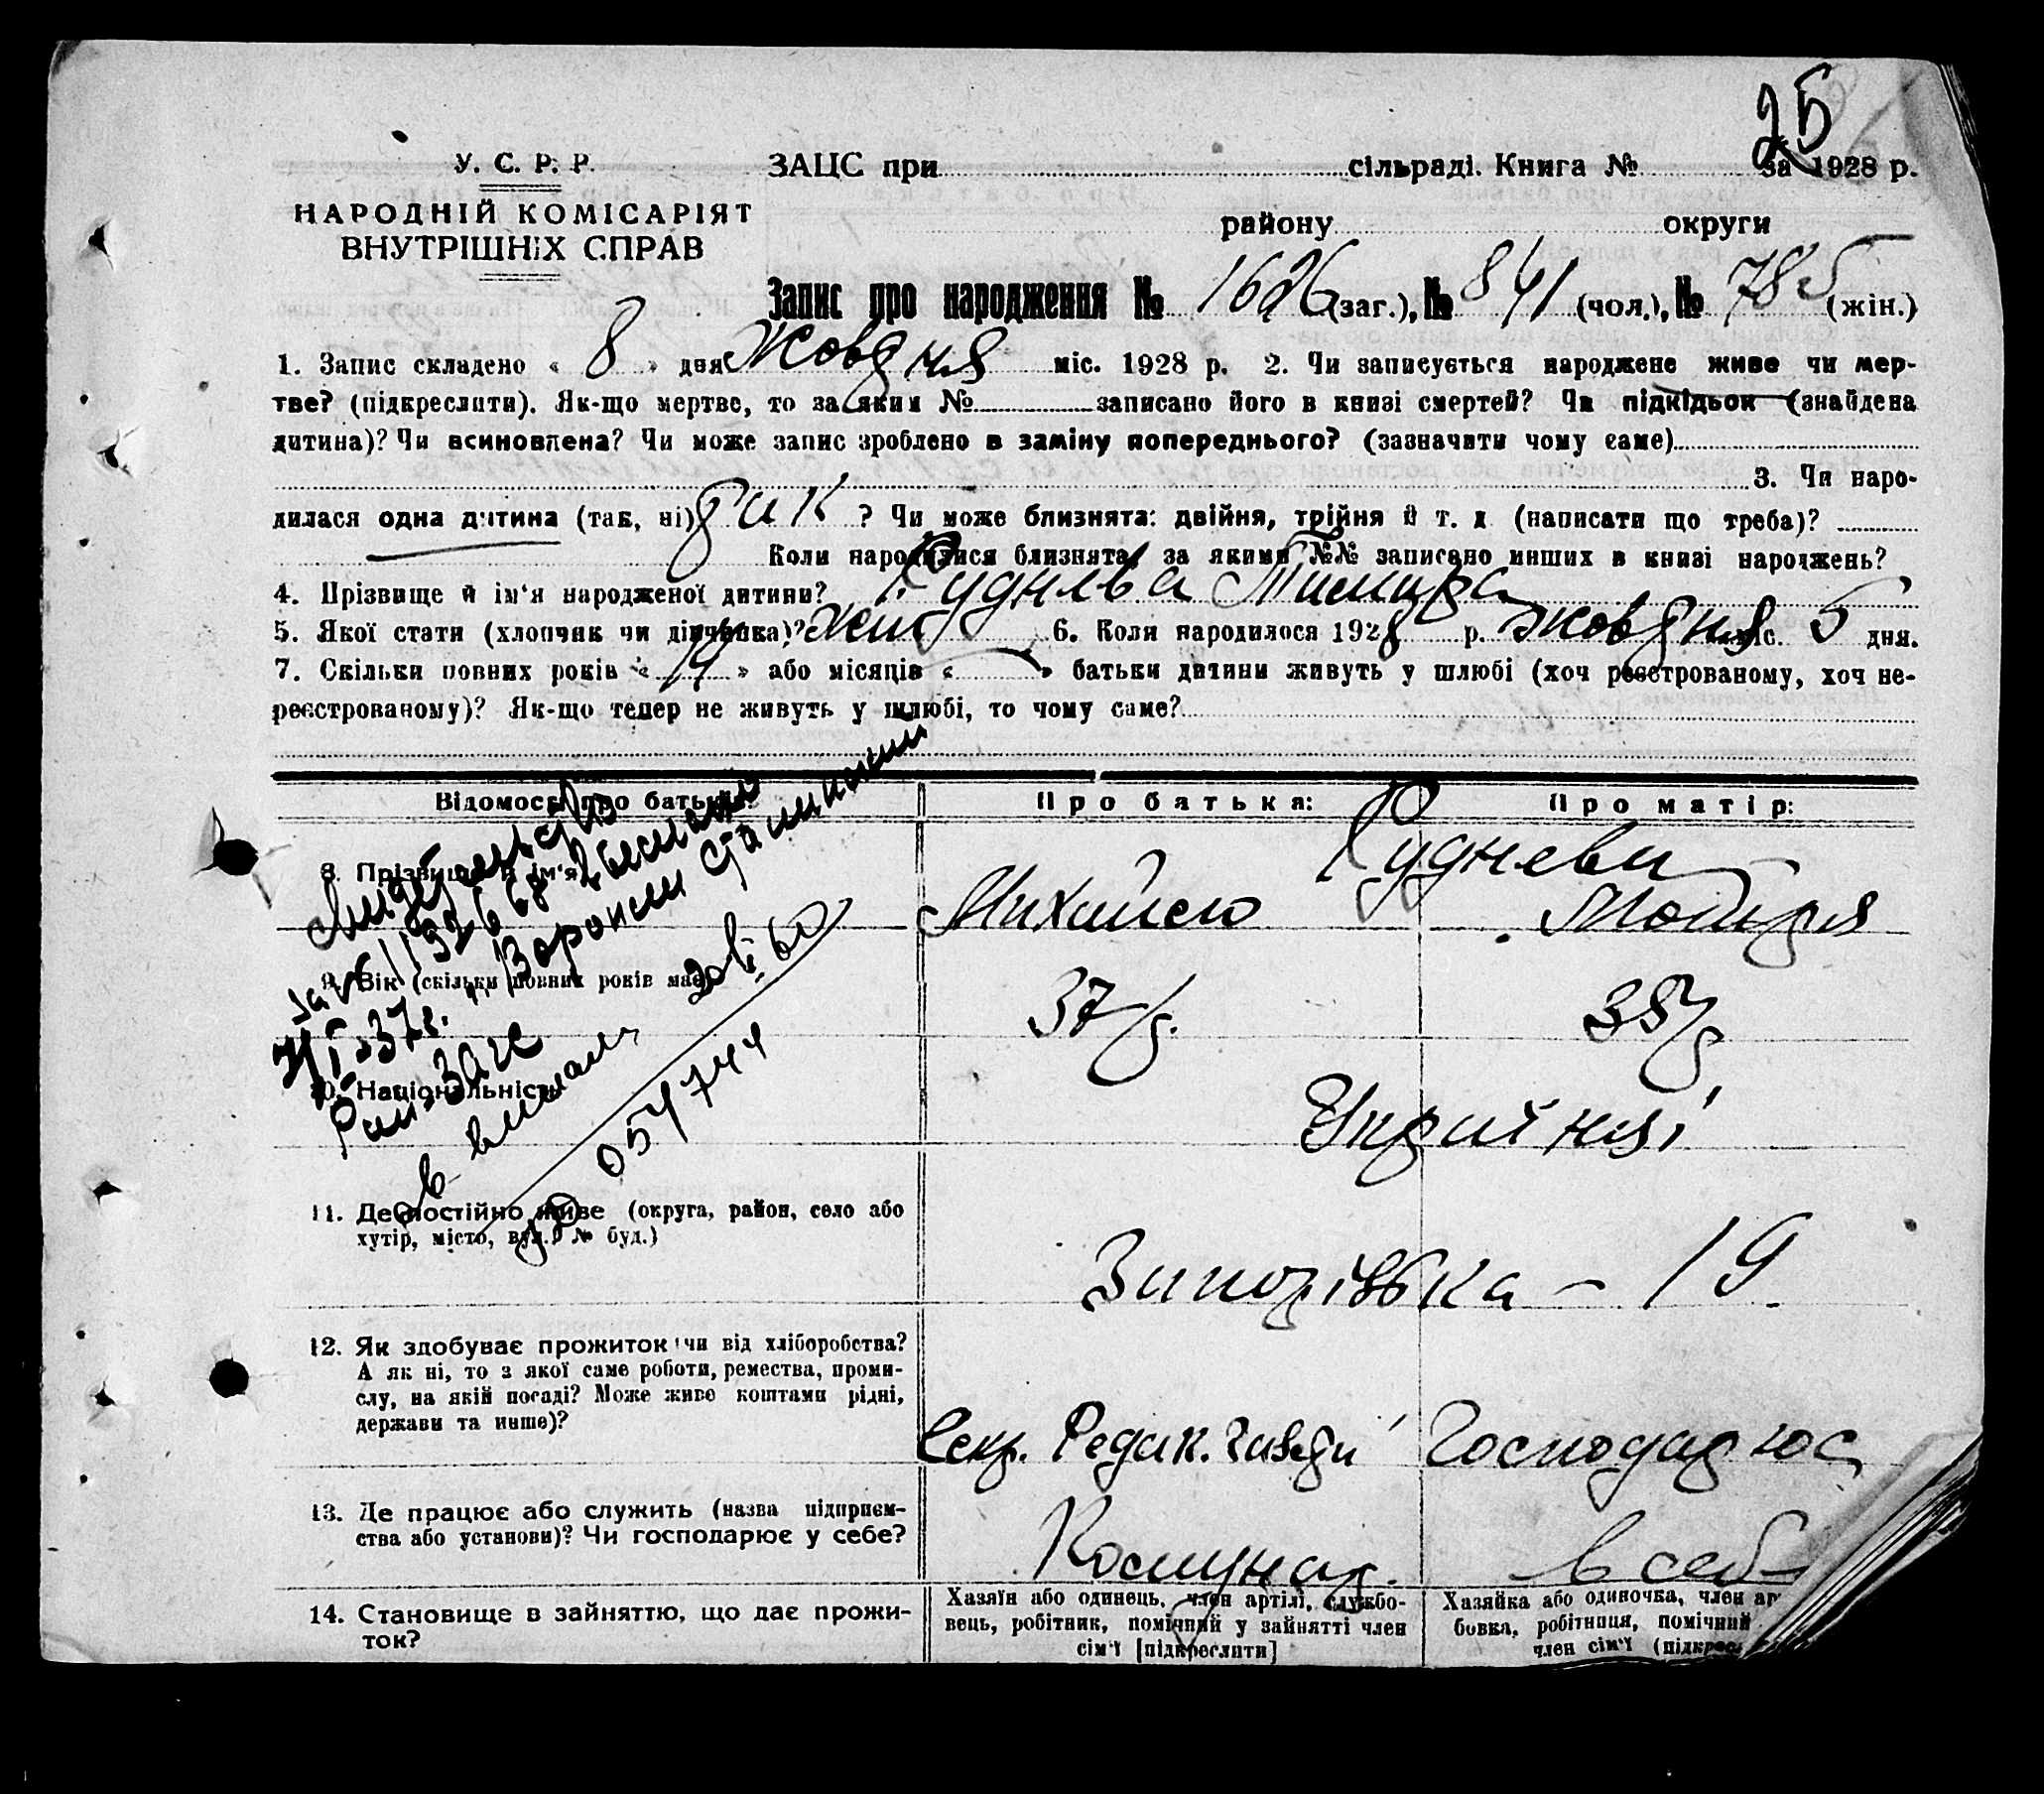 25
У. С. Р. Р.
ЗАЦС при сільраді. Книга № за 1928 р.
НАРОДНІЙ КОМІСАРІЯТ
ВНУТРІШНІХ СПРАВ
району округи
Запис про народження № 1626 (заг.), № 841 (чол.), № 785 (жін.)
1. Запис складено « 8 » дня Жовдня міс. 1928 р. 2. Чи записується народжене живе чи мер-
тве? (підкреслити). Як-що мертве, то за яким № записано його в книзі смертей? Чи підкідьок (знайдена
дитина)? Чи всиновлена? Чи може запис зроблено в заміну попереднього? (зазначити чому саме)
3. Чи наро-
дилася одна дитина (так, ні) так ? Чи може близнята: двійня, трійня й т. д (написати що треба)?
Коли народилися близнята, за якими №№ записано инших в книзі народжень?
4. Прізвище й ім'я народженої дитини? Руднева
5. Якої стати (хлопчик чи дівчинка)? Жін 6. Коли народилося 1928 р. жовдня міс. 5 дня.
7. Скільки повних років « 14 » або місяців « » батьки дитини живуть у шлюбі (хоч реєстрованому, хоч не-
реєстрованому)? Як-що тепер не живуть у шлюбі, то чому саме?
Відомості про батьків Про батька: Про матір:
Рудневи
8. Прізвище й ім'я
Михайло Мотря
9. Вік (скільки повних років має)
37 р. 38 р
10. Національність
Українці
11. Де постійно живе (округа, район, село або
хутір, місто, вул. № буд.)
054744
Запорізька - 19
12. Як здобуває прожиток чи від хліборобства?
А як ні, то з якої саме роботи, ремества, проми-
слу, на якій посаді? Може живе коштами рідні,
держави та инше)?
Секр. Редак. газети Господарює
13. Де працює або служить (назва підприєм-
ства або установи)? Чи господарює у себе?
Комунар. в себе
14. Становище в зайняттю, що дає прожи-
ток?
Хазяїн або одинець, член артілі, службо-
вець, робітник, помічний у зайнятті член
сім'ї [підкреслити]
Хазяйка або одиночка, член ар
бовка, робітниця, помічний
член сім'ї (підкрес